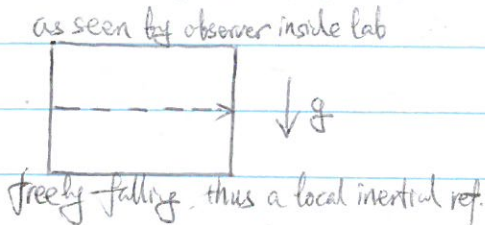 as seen by observer inside lab
g
freely-falling, thus a local inertial ref.